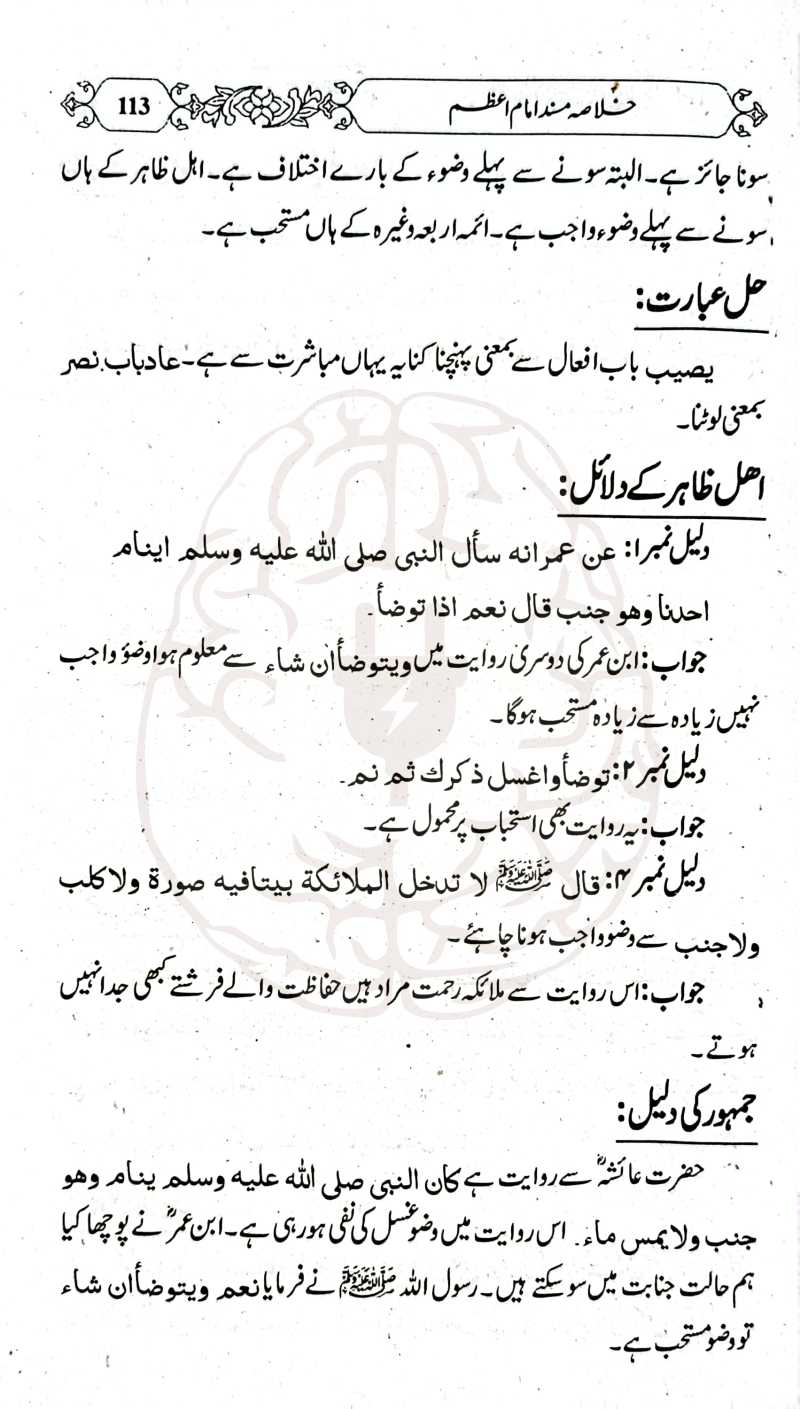 خلاصہ مسند امام اعظم
113
سونا جائز ہے۔ البتہ سونے سے پہلے وضوء کے بارے اختلاف ہے۔ اہل ظاہر کے ہاں
سونے سے پہلے وضوء واجب ہے۔ ائمہ اربعہ وغیرہ کے ہاں مستحب ہے۔
حل عبارت:
یصیب باب افعال سے بمعنی پہنچنا کنایہ یہاں مباشرت سے ہے۔ عاد باب نصر
بمعنی لوٹنا۔
اھل ظاہر کے دلائل:
دلیل نمبر ۱: عن عمر انه سأل النبی صلی الله علیه وسلم اینام
احدنا وهو جنب قال نعم اذا توضأ۔
جواب: ابن عمر کی دوسری روایت میں ویتوضأ ان شاء سے معلوم ہوا وضؤ واجب
نہیں زیادہ سے زیادہ مستحب ہوگا۔
دلیل نمبر ۲: توضأ واغسل ذکرك ثم نم۔
جواب: یہ روایت بھی استحباب پر محمول ہے۔
دلیل نمبر ۴: قال ﷺ لا تدخل الملائکة بیتا فیه صورة ولا کلب
ولا جنب سے وضو واجب ہونا چاہئے۔
جواب: اس روایت سے ملائکہ رحمت مراد ہیں حفاظت والے فرشتے کبھی جدا نہیں
ہوتے۔
جمہور کی دلیل:
حضرت عائشہؓ سے روایت ہے کان النبی صلی الله علیه وسلم ینام وهو
جنب ولا یمس ماء۔ اس روایت میں وضو غسل کی نفی ہورہی ہے۔ ابن عمرؓ نے پوچھا کیا
ہم حالت جنابت میں سو سکتے ہیں۔ رسول اللہ ﷺ نے فرمایا نعم ویتوضأ ان شاء
تو وضو مستحب ہے۔